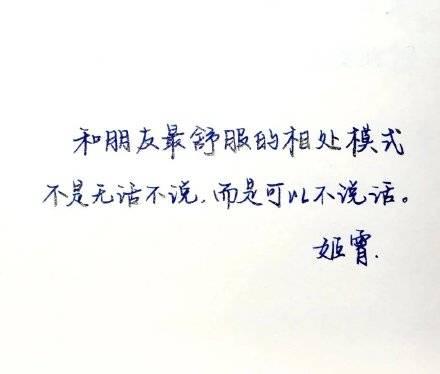 和朋友最舒服的相处模式
不是无话不说，而是可以不说话。
姬霄.